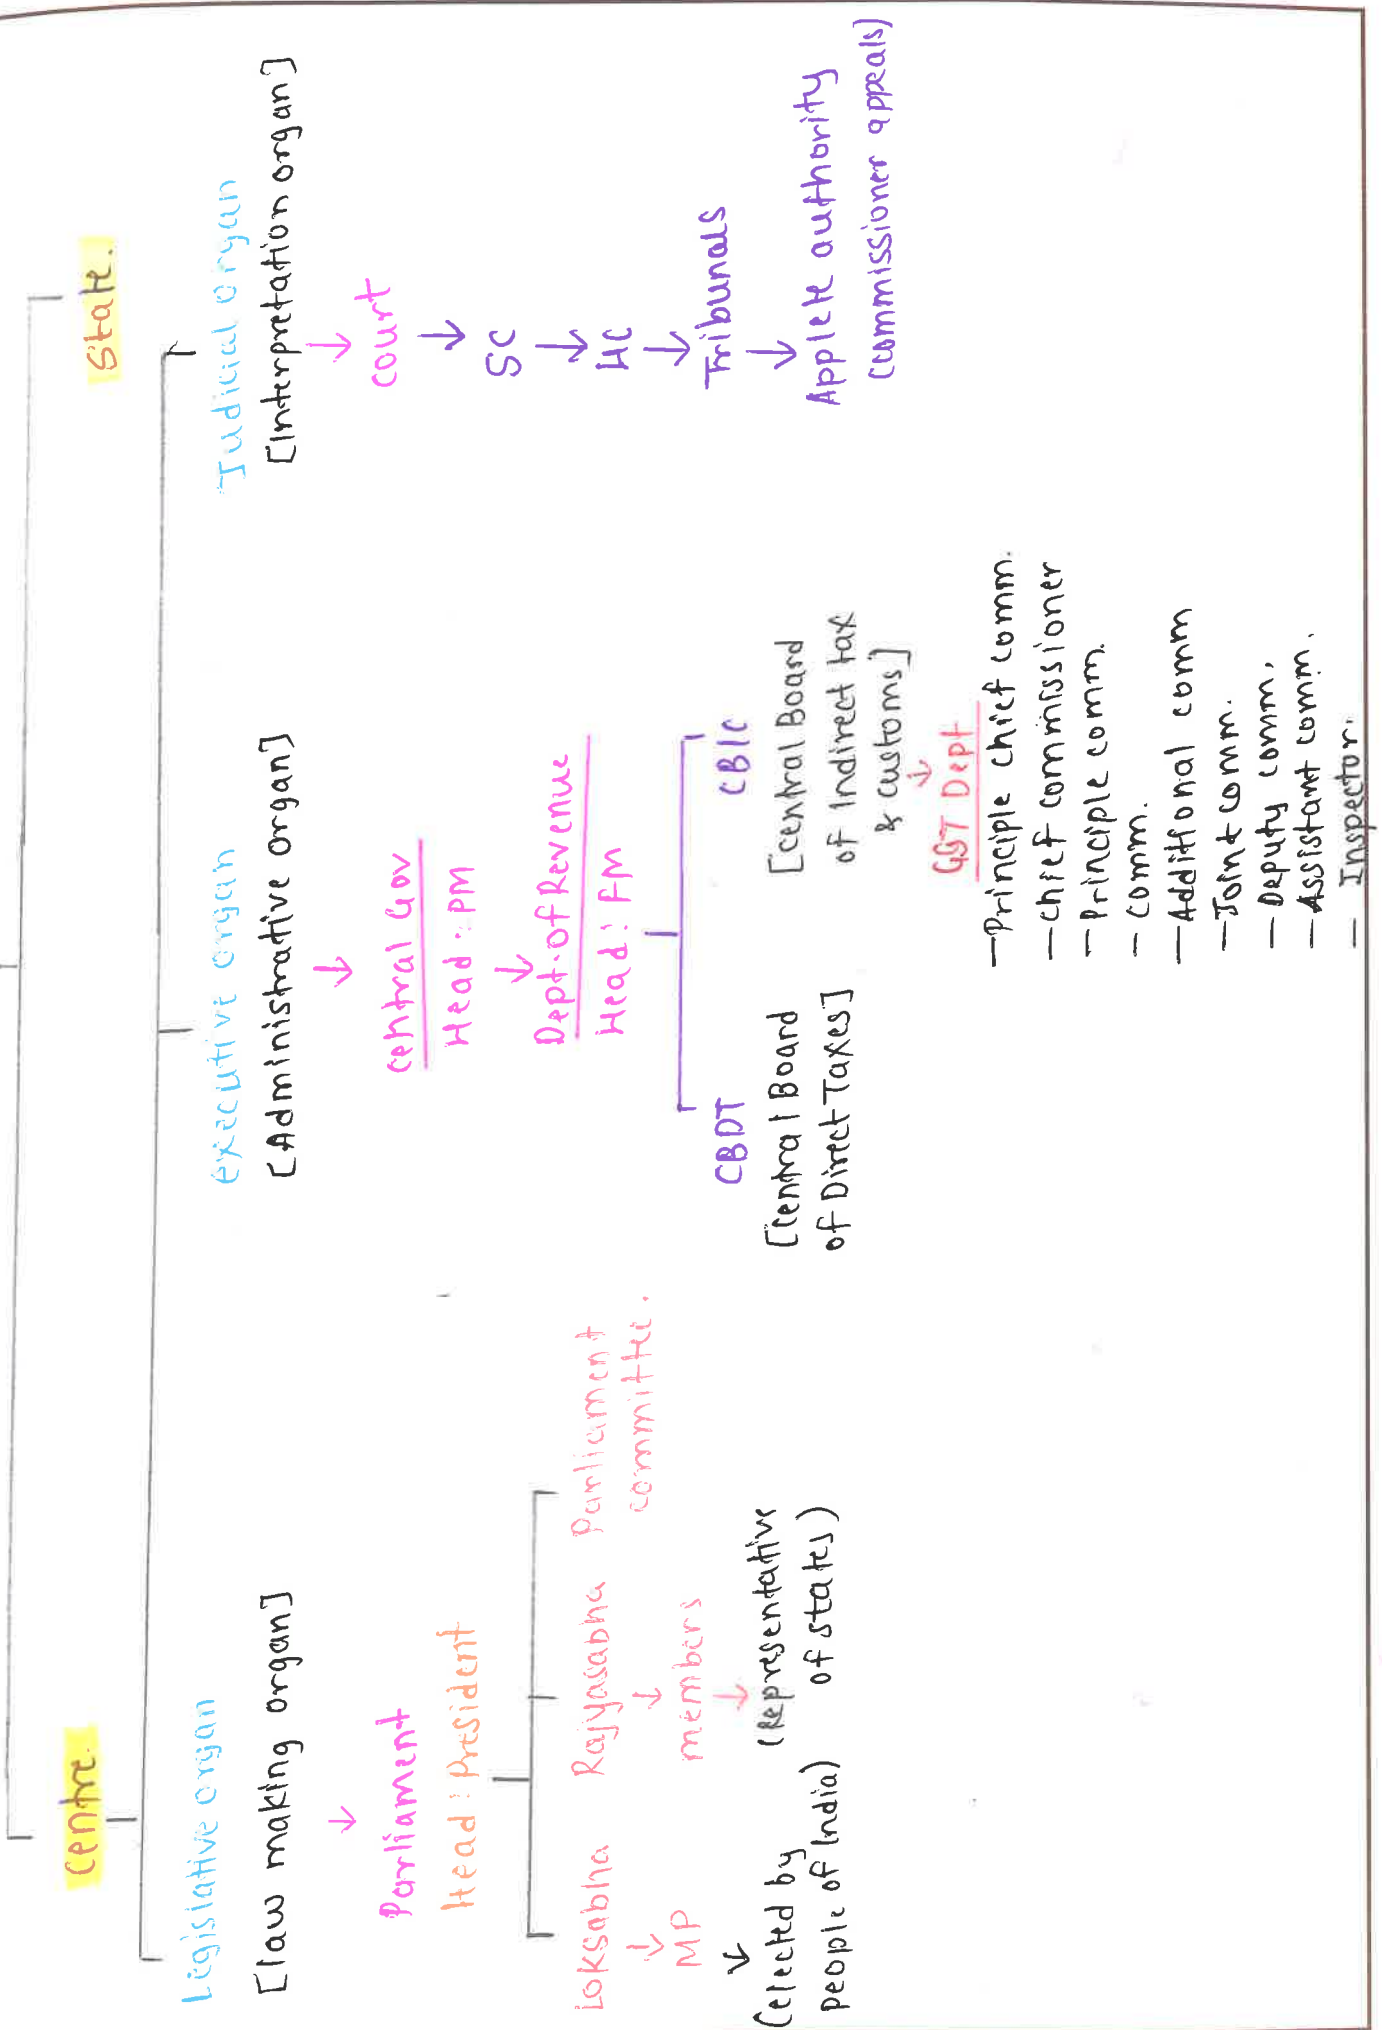 Centre.
State.
Legislative organ
[law making organ]
Parliament
Head : President
Loksabha
MP
(elected by
people of India)
Rajyasabha
members
(Representative
of states)
Parliament
committee.
executive organ
[Administrative organ]
central Gov
Head : PM
Dept. of Revenue
Head : FM
CBDT
[Central Board
of Direct Taxes]
CBIC
[Central Board
of Indirect tax
& customs]
GST Dept
- Principle chief comm.
- chief commissioner
- Principle comm.
- comm.
- Additional comm
- Joint comm.
- Deputy comm.
- Assistant comm.
- Inspector.
Judicial organ
[Interpretation organ]
court
SC
HC
Tribunals
Applete authority
(commissioner appeals)